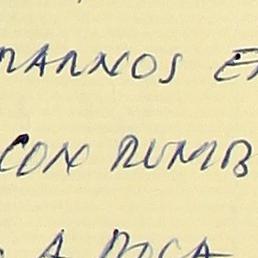 MARNOS EN
CON RUMB
A POCA